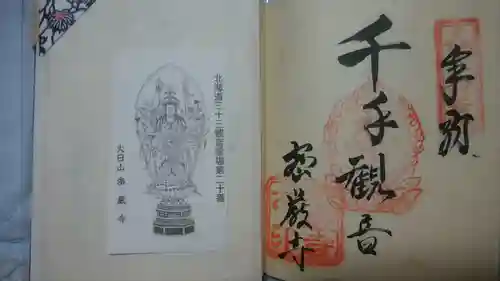 奉拜
千手觀音
密嚴寺
北海道三十三観音霊場第二十番
大日山 密厳寺